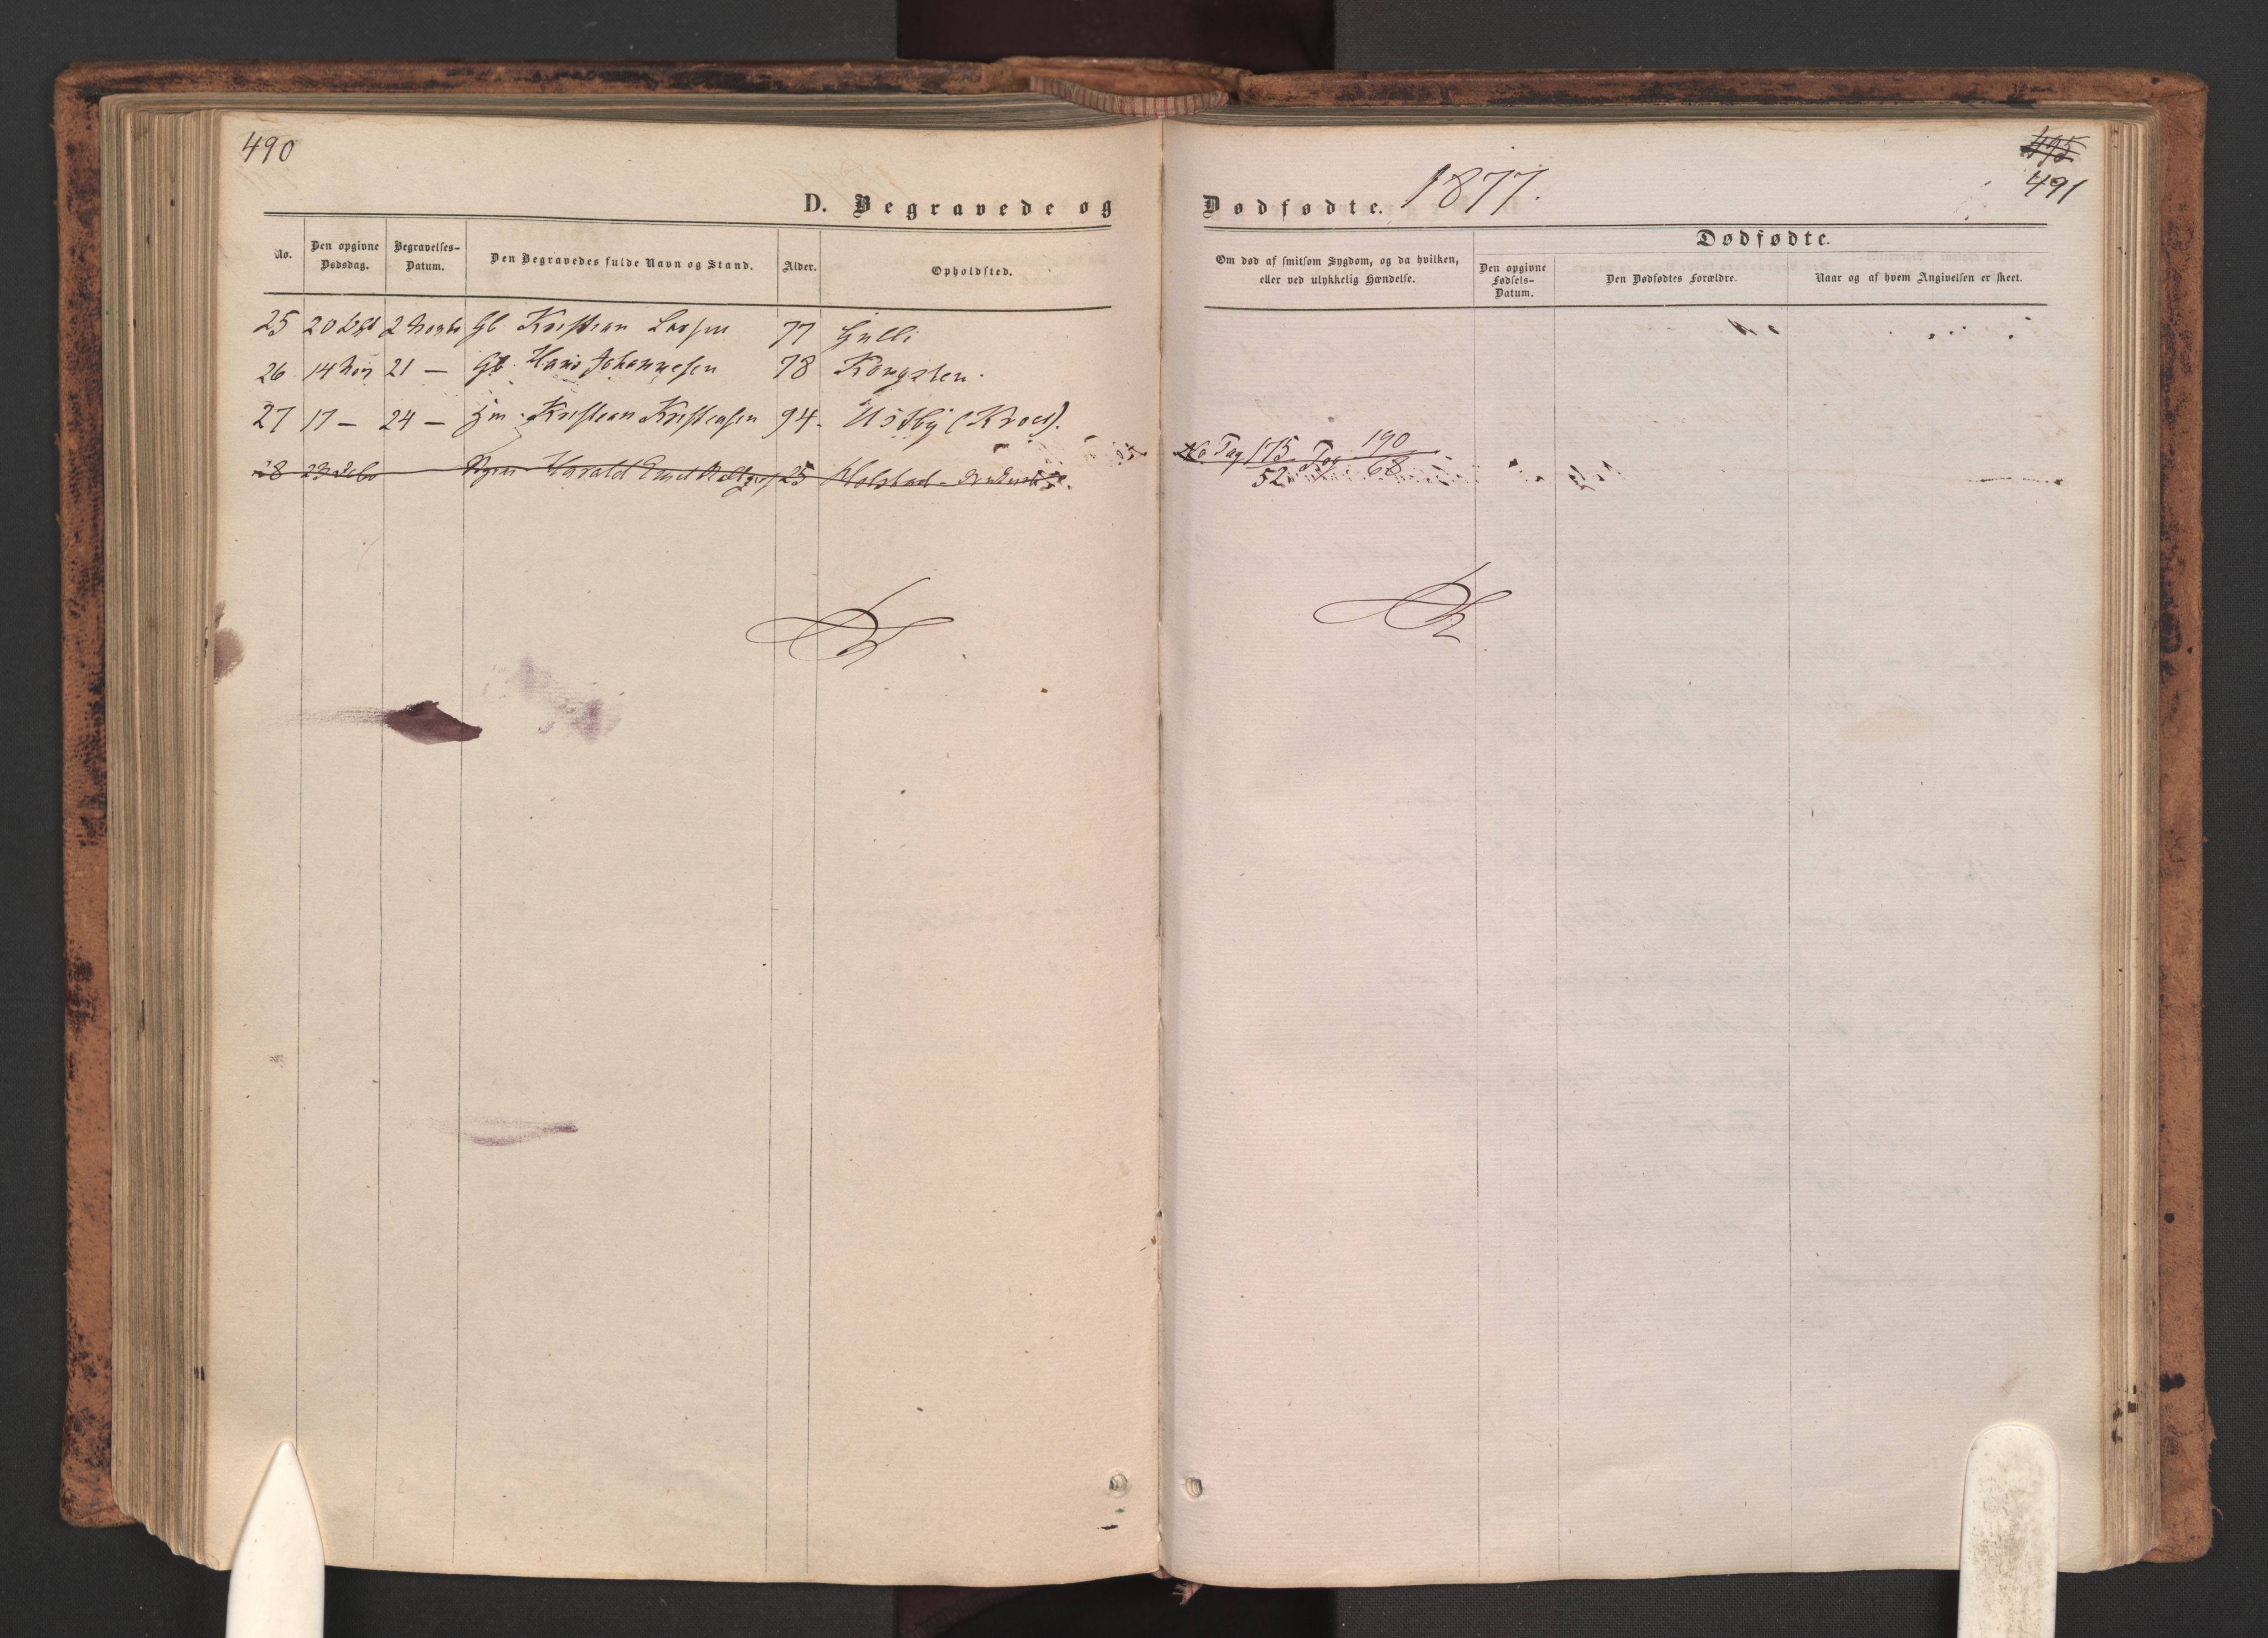 490
D. Begravede og
No.
Den opgivne Dødsdag.
Begravelses-Datum.
Den Begravedes fulde Navn og Stand.
Alder.
Opholdsted.
25 20 2 Gb. Kristian Larsen 77 Gulli
26 14 Nov 21 — Gb. Hans Johannesen 78 Kongsten.
27 17 — 24 — Kristian Kristensen 94. Ustby
28 23 Harald 25 Holstad
495
491
Dødfødte. 1877.
Om død af smitsom Sygdom, og da hvilken,
eller ved ulykkelig Hændelse.
Dødfødte.
Den opgivne Fødsels-Datum.
Den Dødfødtes Forældre.
Naar og af hvem Angivelsen er skeet.
175 190
52 68